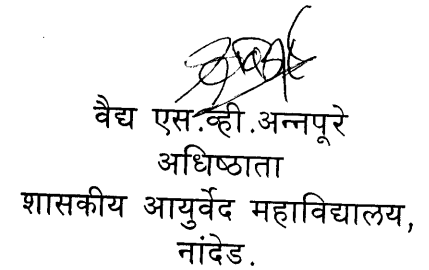 वैद्य एस.व्ही.अन्नपूरे
अधिष्ठाता
शासकीय आयुर्वेद महाविद्यालय,
नांदेड.